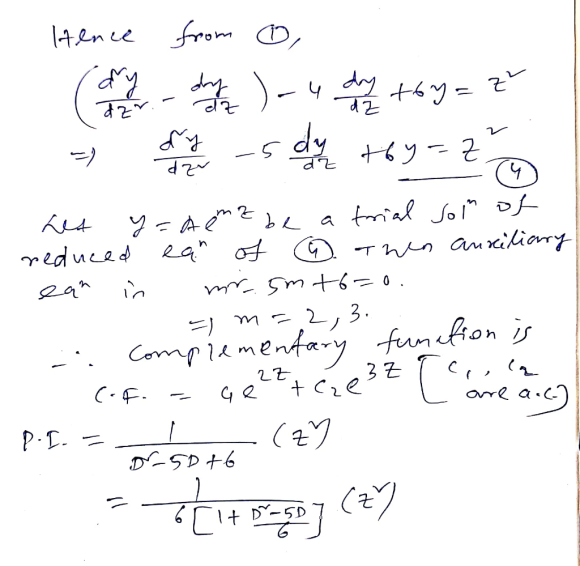 Hence from ①,
(d²y/dz² - dy/dz) - 4 dy/dz + 6y = z²
⇒ d²y/dz² - 5 dy/dz + 6y = z² ④
Let y = Ae^mz be a trial solⁿ of
reduced eqⁿ of ④. Then auxiliary
eqⁿ is m² - 5m + 6 = 0.
⇒ m = 2, 3.
∴ Complementary function is
C.F. = c₁e^2z + c₂e^3z [c₁, c₂ are a.c.]
P.I. = 1/(D² - 5D + 6) (z²)
= 1/(6[1 + (D² - 5D)/6]) (z²)